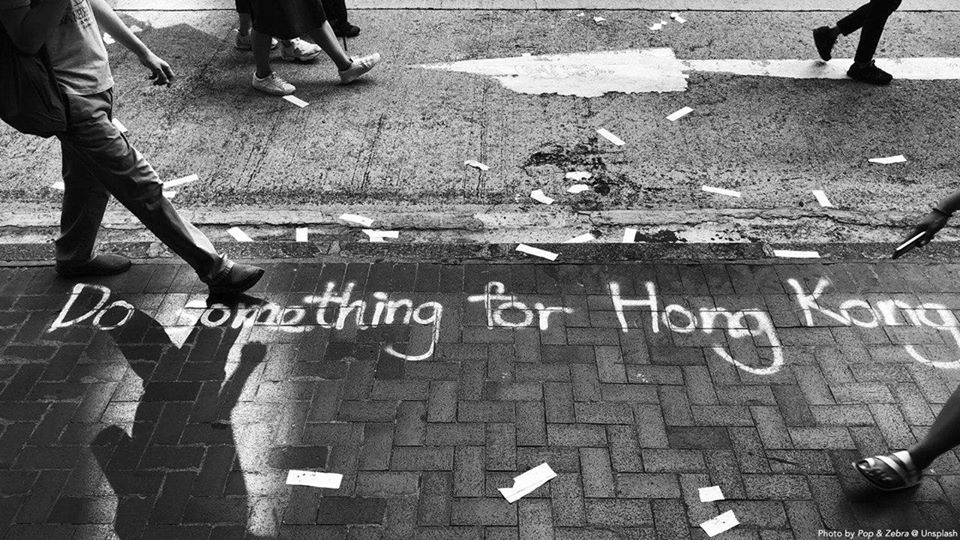 Do Something for Hong Kong
Photo by Pop & Zebra @ Unsplash